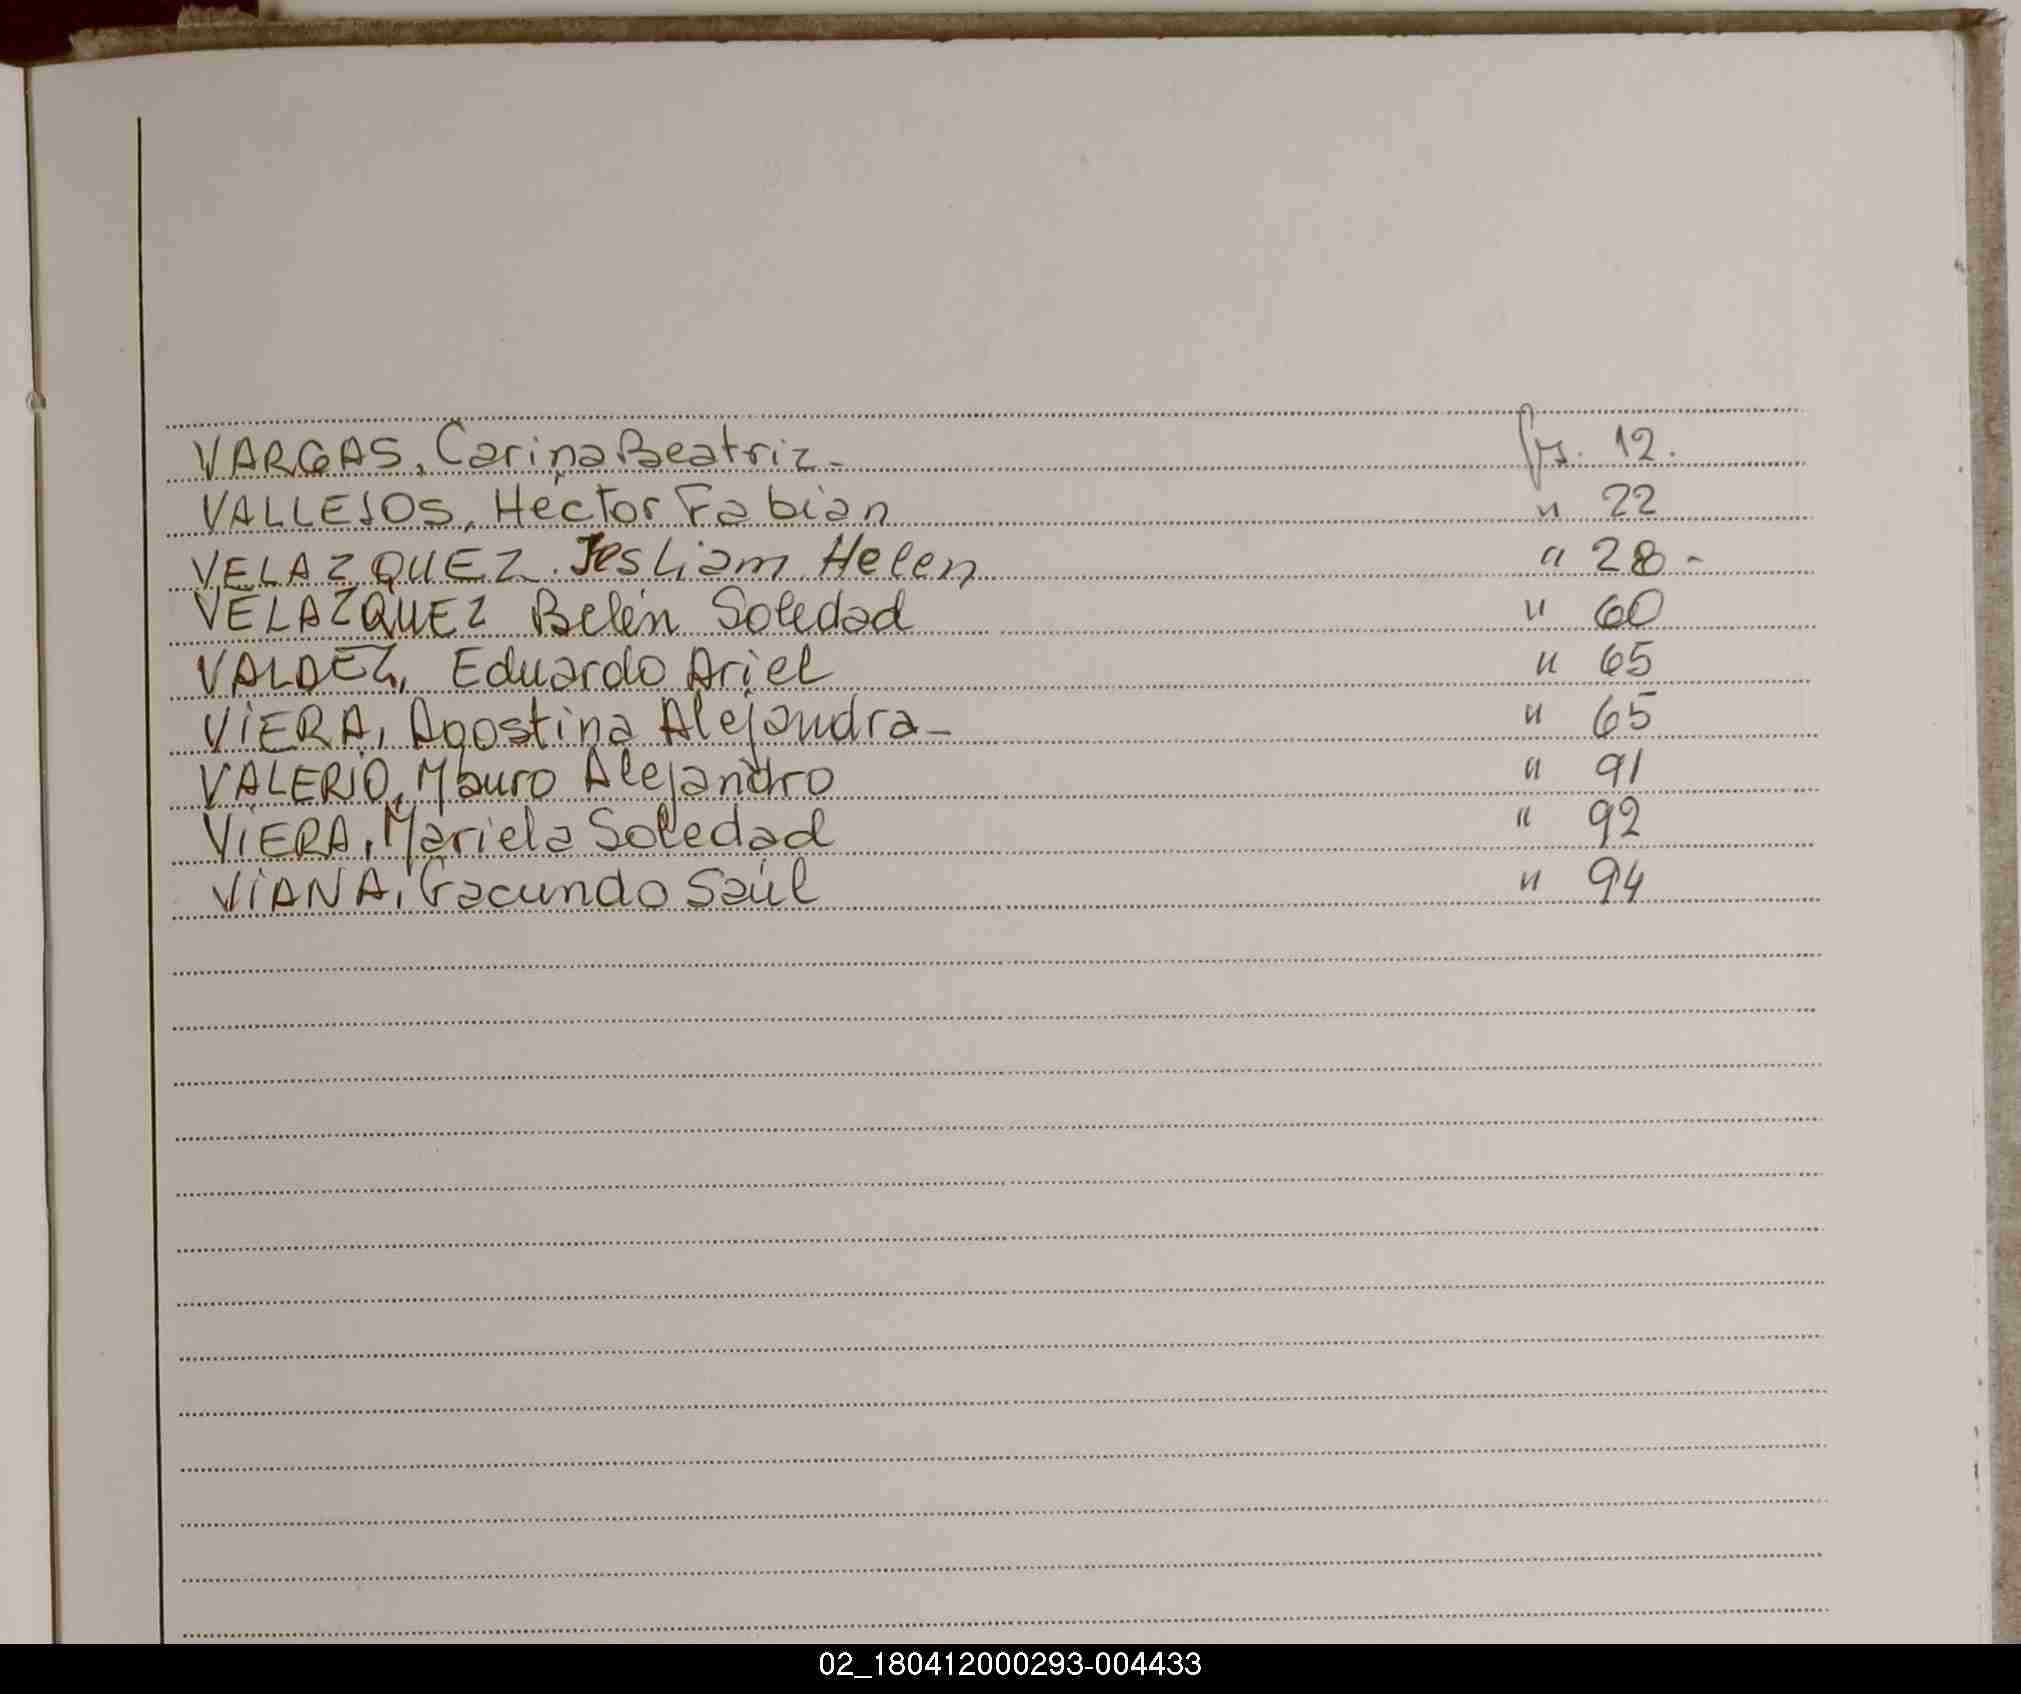 VARGAS, Carina Beatriz - fjs. 12.
VALLEJOS, Hector Fabian " 22
VELAZQUEZ. Jesliam Helen " 28 -
VELAZQUEZ Belén Soledad " 60
VALDEZ, Eduardo Ariel " 65
VIERA, Agostina Alejandra - " 65
VALERIO, Mauro Alejandro " 91
VIERA, Mariela Soledad " 92
VIANA, Facundo Saúl " 94
02_180412000293-004433